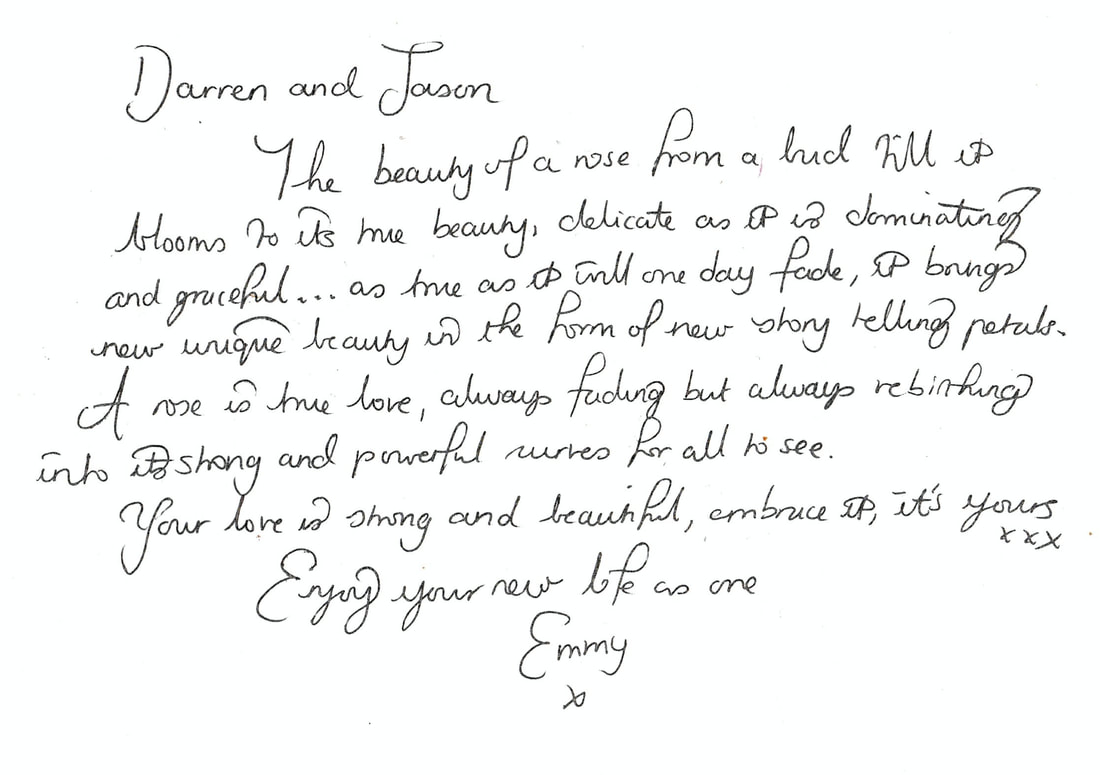 Darren and Jason
The beauty of a rose from a bud till it
blooms to its true beauty, delicate as it is dominating
and graceful... as true as it will one day fade, it brings
new unique beauty in the form of new story telling petals.
A rose is true love, always fading but always rebirthing
into its strong and powerful curves for all to see.
Your love is strong and beautiful, embrace it, it's yours
xxx
Enjoy your new life as one
Emmy
x